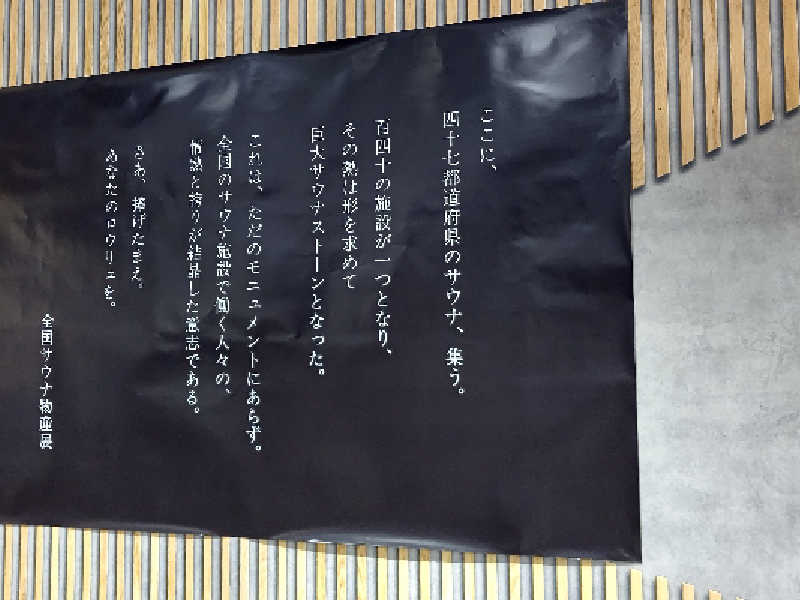 ここに、
四十七都道府県のサウナ、集う。
百四十の施設が一つとなり、
その熱は形を求めて
巨大サウナストーンとなった。
これは、ただのモニュメントにあらず。
全国のサウナ施設で働く人々の、
情熱と誇りが結晶した意志である。
さあ、捧げたまえ。
あなたのロウリュを。
全国サウナ物産展